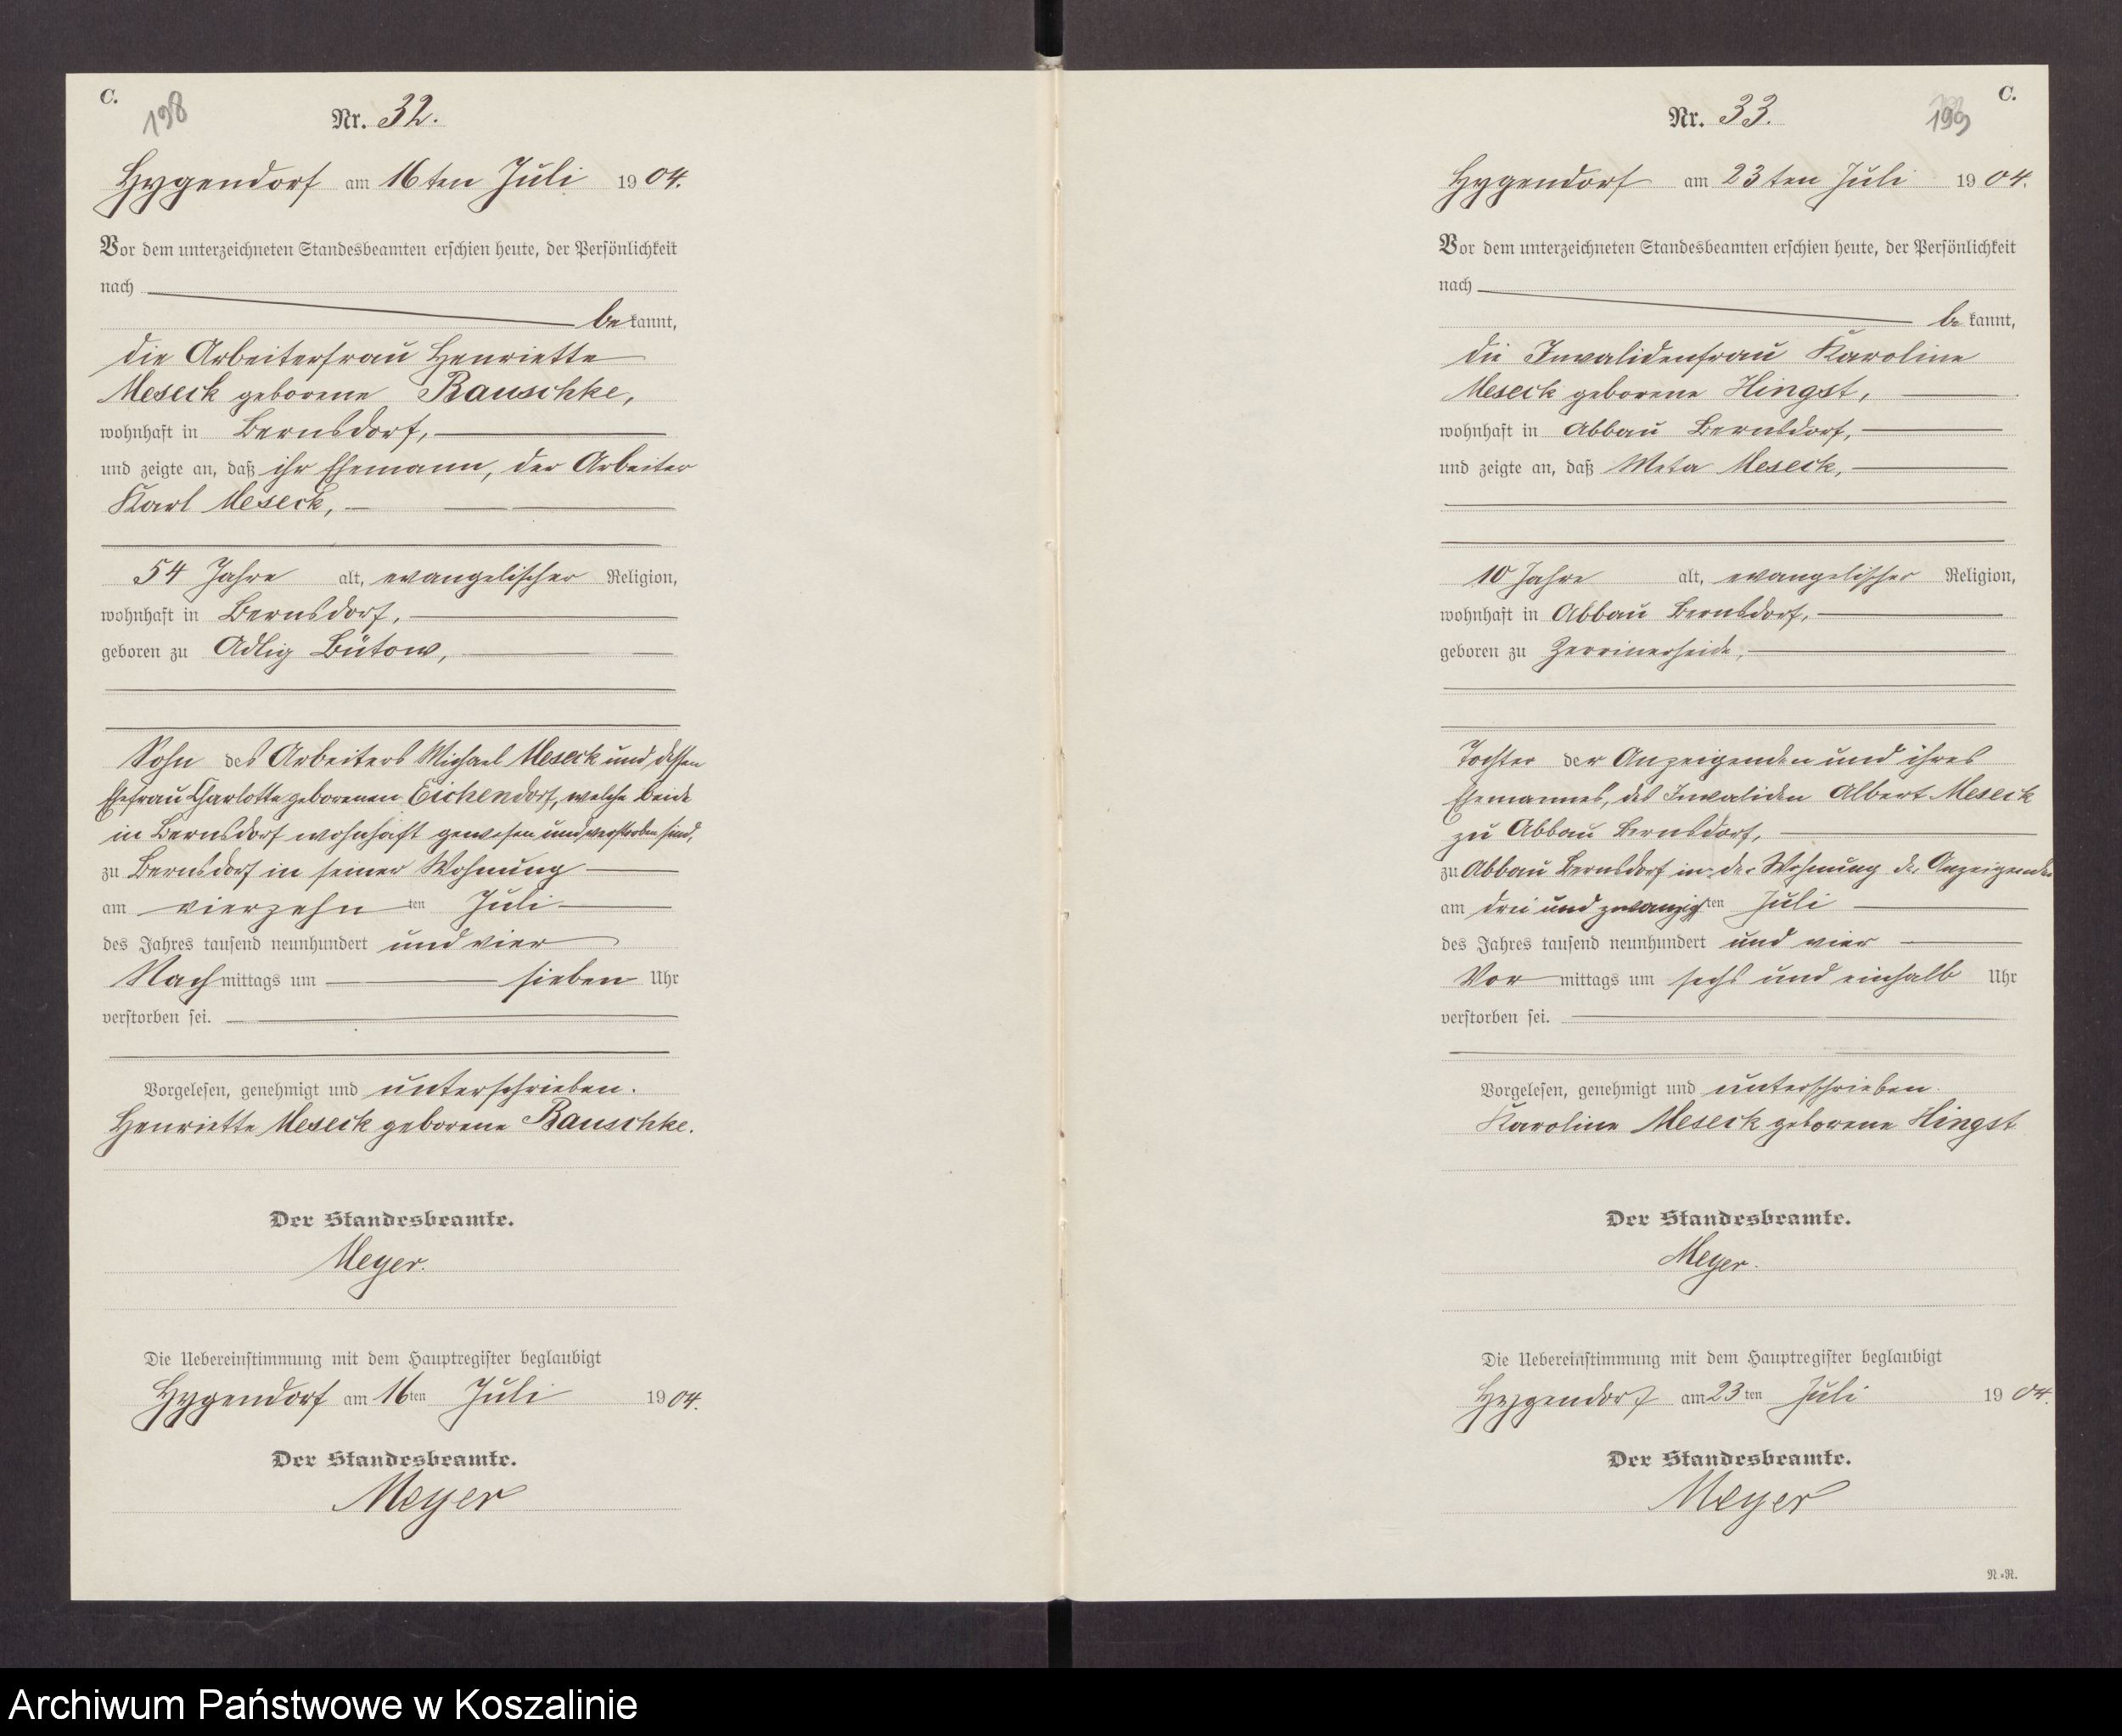 C.
198
Nr. 32.
Hygendorf am 16ten Juli 1904.
Vor dem unterzeichneten Standesbeamten erschien heute, der Persönlichkeit
nach
bekannt,
die Arbeiterfrau Henriette
Meseck geborene Bauschke,
wohnhaft in Bernsdorf,
und zeigte an, daß ihr Ehemann, der Arbeiter
Karl Meseck,
54 Jahre alt, evangelischer Religion,
wohnhaft in Bernsdorf,
geboren zu Adlig Bütow,
Sohn des Arbeiters Michael Meseck und dessen
Ehefrau Charlotte geborenen Eichendorf, welche beide
in Bernsdorf wohnhaft gewesen und verstorben sind,
zu Bernsdorf in seiner Wohnung
am vierzehnten Juli
des Jahres tausend neunhundert und vier
Nachmittags um sieben Uhr
verstorben sei.
Vorgelesen, genehmigt und unterschrieben.
Henriette Meseck geborene Bauschke.
Der Standesbeamte.
Meyer.
Die Uebereinstimmung mit dem Hauptregister beglaubigt
Hygendorf am 16ten Juli 1904.
Der Standesbeamte.
Meyer
C.
199
Nr. 33.
Hygendorf am 23ten Juli 1904.
Vor dem unterzeichneten Standesbeamten erschien heute, der Persönlichkeit
nach
bekannt,
die Invalidenfrau Karoline
Meseck geborene Hingst,
wohnhaft in Abbau Bernsdorf,
und zeigte an, daß Meta Meseck,
10 Jahre alt, evangelischer Religion,
wohnhaft in Abbau Bernsdorf,
geboren zu Zerrinerheide,
Tochter der Anzeigenden und ihres
Ehemannes, des Invaliden Albert Meseck
zu Abbau Bernsdorf,
zu Abbau Bernsdorf in der Wohnung der Anzeigenden
am drei und zwanzigten Juli
des Jahres tausend neunhundert und vier
Vormittags um sechs und einhalb Uhr
verstorben sei.
Vorgelesen, genehmigt und unterschrieben.
Karoline Meseck geborene Hingst
Der Standesbeamte.
Meyer.
Die Uebereinstimmung mit dem Hauptregister beglaubigt
Hygendorf am 23ten Juli 1904.
Der Standesbeamte.
Meyer
N.=N.
Archiwum Państwowe w Koszalinie